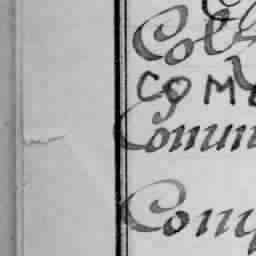 Col
COM
Comm
Com